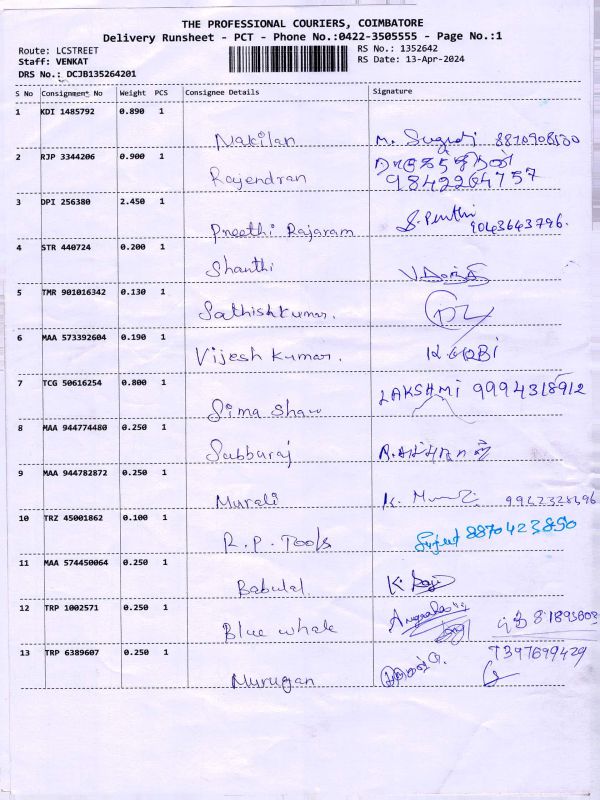 THE PROFESSIONAL COURIERS, COIMBATORE
Delivery Runsheet - PCT - Phone No.:0422-3505555 - Page No.:1
Route: LCSTREET
Staff: VENKAT
DRS No.: DCJB135264201
RS No.: 1352642
RS Date: 13-Apr-2024
S No Consignment No Weight PCS Consignee Details Signature
1 KDI 1485792 0.890 1
Nakilan
2 RJP 3344206 0.900 1
Rajendran 9842264757
3 DPI 256380 2.450 1
Preethi Rajaram 9043643796.
4 STR 440724 0.200 1
Shanthi
5 TMR 901016342 0.130 1
Sathishkumar.
6 MAA 573392604 0.190 1
Vijesh Kumar.
7 TCG 50616254 0.800 1
Sima Shaw LAKSHMI 9994318912
8 MAA 944774480 0.250 1
Subburaj
9 MAA 944782872 0.250 1
Murali 9962328396
10 TRZ 45001862 0.100 1
R.P. Tools 8870423850
11 MAA 574450064 0.250 1
Babulal
12 TRP 1002571 0.250 1
Blue whale
13 TRP 6389607 0.250 1
Murugan 7397699429